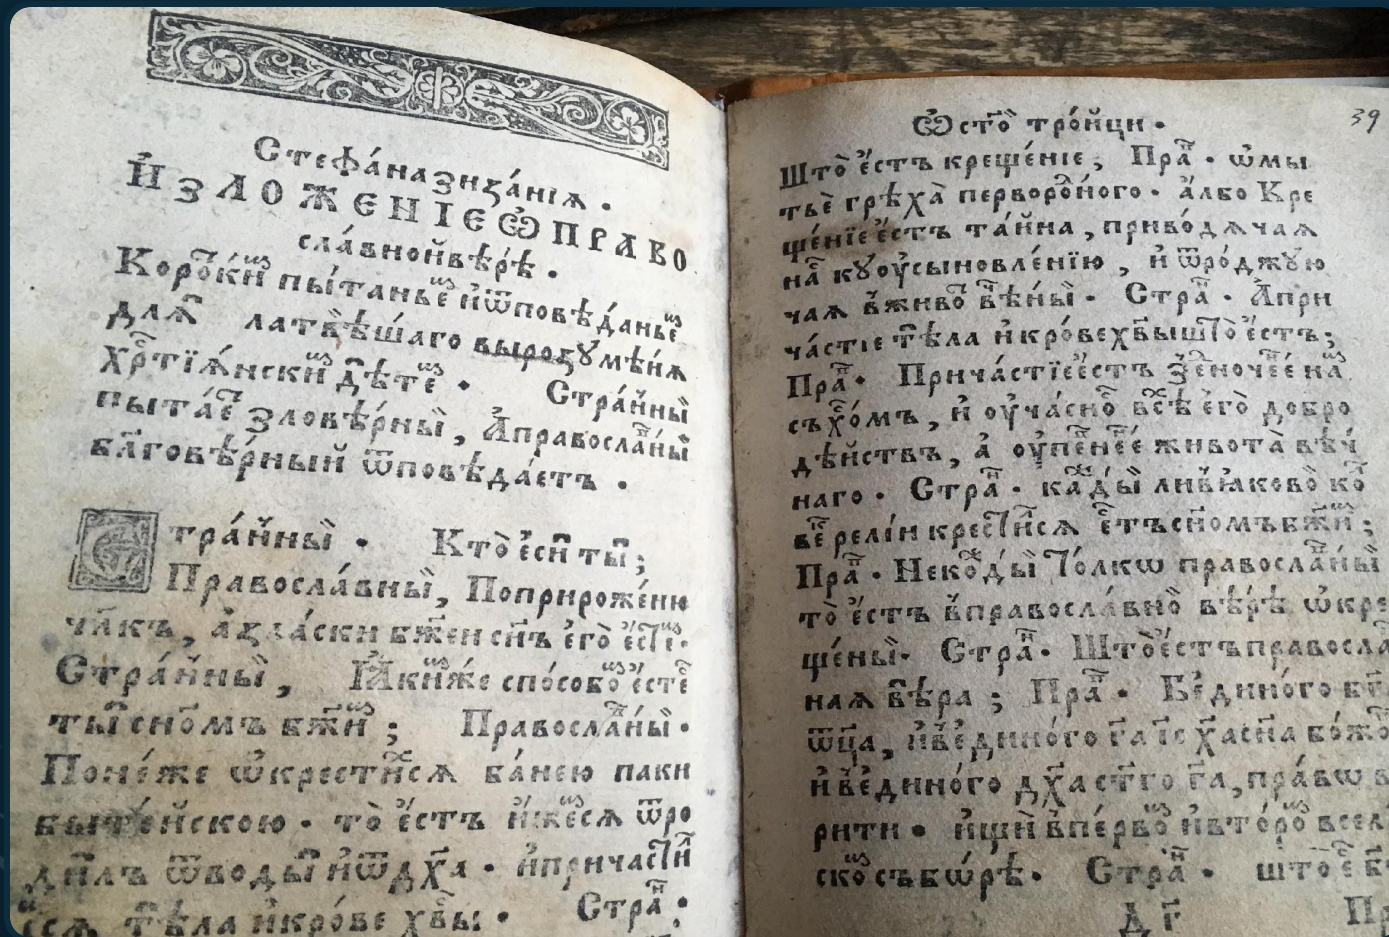 Стефа́на зиза́нїѧ .
И҆ЗЛОЖЕНІЕ Ѽ ПРАВО
сла́вной вѣ́рѣ .
Коро́ки пы́танье и҆ ѿповѣ́данье
длѧ латвѣ́йшаго вырозꙋмѣ́нѧ
хрⷭ҇тїѧ́нски дѣ́те . Стра́нны
пыта́е зловѣ́рны , А҆ правосла́ны
бл҃говѣ́рный ѿповѣда́етъ .
Стра́нны . Кто̀ е҆сѝ ты̀ ;
Правосла́вны , По прироже́ню
чл҃къ , а҆ з ла́ски бж҃еи сн҃ъ е҆го̀ е҆сті .
Стра́нны , Ꙗ҆ки́же спо́собо е҆сте
ты̀ сн҃омъ бж҃и ; Правосла́ны .
Поне́же ѡ҆крести́сѧ ба́нею паки
быте́йскою . то̀ е҆́стъ и҆́жесѧ ѿро
ди́лъ ѿ воды̀ и҆ ѿ дх҃а . и҆ причасти́
сѧ тѣ́ла и҆ кро́ве хв҃ы . Стра .
Ѽ ст҃о тро́йци .
39
Што̀ е҆́стъ креще́нїе ; Пра . ѡ҆мы
тьѐ грѣха̀ перворо́ного . а҆́лбо Кре
ще́нїе е҆́стъ та́йна , приво́дѧчаѧ
на́ кꙋ ᲂу҆сыновле́нїю , и҆ ѿро́джꙋю
чаѧ в живо вѣ́ны . Стра . А҆ при
ча́стїе тѣ́ла и҆ кро́ве хв҃ы што̀ е҆́стъ ;
Пра . Прича́стїе е҆́стъ зе҆ноче́е на
съ хо́мъ , и҆ ᲂу҆ча́сно все́ѣ е҆го̀ добро
дѣ́йствъ , а҆ ᲂу҆пе́не́е живота̀ вѣ́ч
наго . Стра . ка́ды ли в ꙗково̀ ко
ве ре́лїи крести́сѧ е҆́тъ сн҃омъ бж҃и ;
Пра . Неко́ды то́лкѡ правосла́ны
то̀ е҆́стъ в правосла́вно вѣ́рѣ ѡ҆кре
ще́ны . Стра . Што̀ е҆́стъ правосла
наѧ вѣ́ра ; Пра . В е҆дино́го
ѿц҃а , и҆ в е҆дино́го г҃а і҆с х҃а сн҃а бо́жо
и҆ в е҆дино́го дх҃а ст҃го г҃а , пра́вѡ в
рити . и҆ щѝ в пе́рво и҆ вто́ро всел
ско съ бѡ́рѣ . Стра . што̀